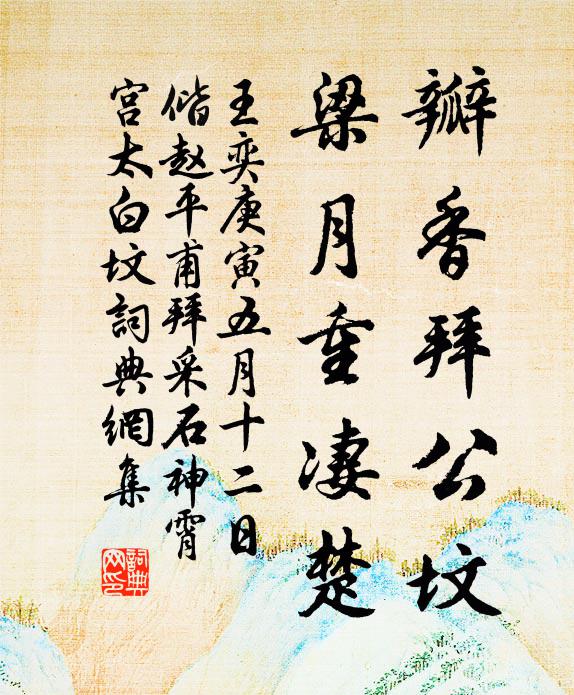 瓣香拜公坟
梁月重凄楚
王奕庚寅五月十二日
偕赵平甫拜采石神霄
宫太白坟詞典網集
詞典
网印